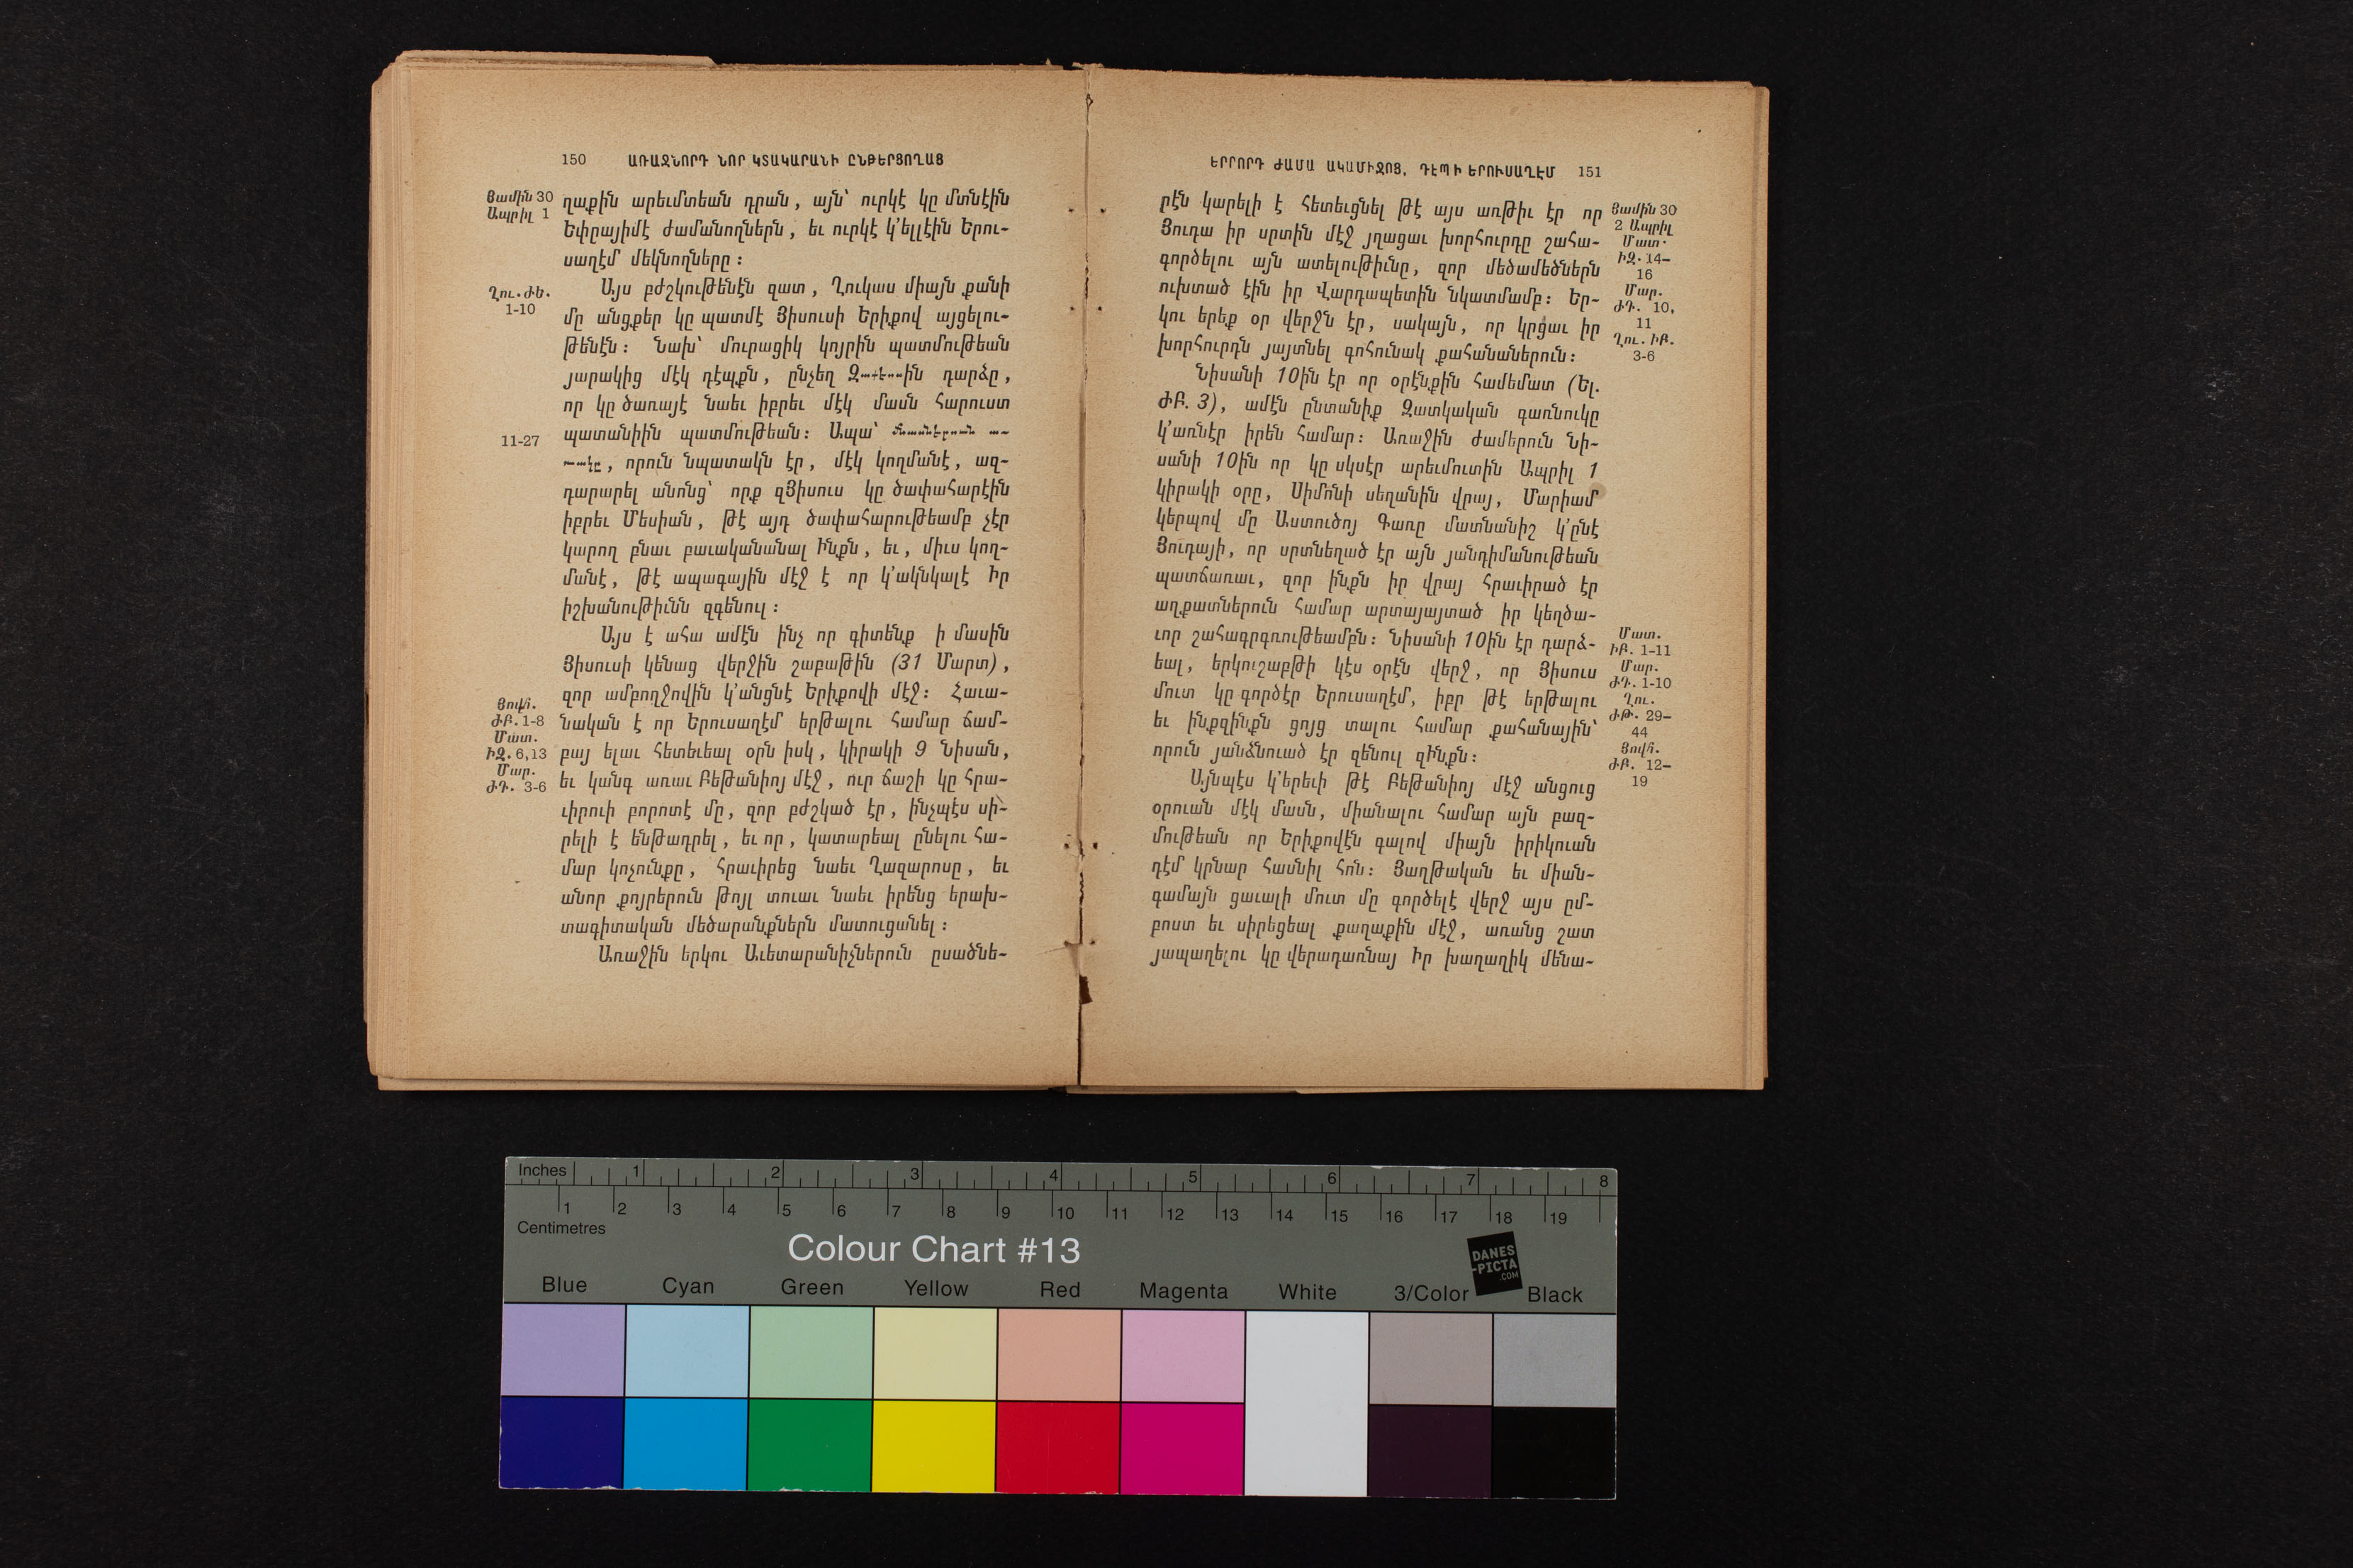 150 ԱՌԱՋՆՈՐԴ ՆՈՐ ԿՏԱԿԱՐԱՆԻ ԸՆԹԵՐՑՈՂԱՑ
Յամին 30
Ապրիլ 1
ղաքին արեւմտեան դրան, այն՝ ուրկէ կը մտնէին
Եփրայիմէ ժամանողներն, եւ ուրկէ կ՚ելլէին Երու-
սաղէմ մեկնողները:
Ղու. ԺԹ.
1-10
Այս բժշկութենէն զատ, Ղուկաս միայն քանի
մը անցքեր կը պատմէ Յիսուսի Երիքով այցելու-
թենէն: Նախ՝ մուրացիկ կոյրին պատմութեան
յարակից մէկ դէպքն, ընչեղ Զաքէոսին դարձը,
որ կը ծառայէ նաեւ իբրեւ մէկ մասն հարուստ
11-27
պատանիին պատմութեան: Ապա՝ Մնասներուն ա-
ռակը, որուն նպատակն էր, մէկ կողմանէ, ազ-
դարարել անոնց՝ որք զՅիսուս կը ծափահարէին
իբրեւ Մեսիան, թէ այդ ծափահարութեամբ չէր
կարող բնաւ բաւականանալ Ինքն, եւ, միւս կող-
մանէ, թէ ապագային մէջ է որ կ՚ակնկալէ Իր
իշխանութիւնն զգենուլ:
Այս է ահա ամէն ինչ որ գիտենք ի մասին
Յիսուսի կենաց վերջին շաբաթին (31 Մարտ),
զոր ամբողջովին կ՚անցնէ Երիքովի մէջ: Հաւա-
Յովհ.
ԺԲ. 1-8
Մատ.
ԻԶ. 6,13
Մար.
ԺԴ. 3-6
նական է որ Երուսաղէմ երթալու համար ճամ-
բայ ելաւ հետեւեալ օրն իսկ, կիրակի 9 Նիսան,
եւ կանգ առաւ Բեթանիոյ մէջ, ուր ճաշի կը հրա-
ւիրուի բորոտէ մը, զոր բժշկած էր, ինչպէս սի-
րելի է ենթադրել, եւ որ, կատարեալ ընելու հա-
մար կոչունքը, հրաւիրեց նաեւ Ղազարոսը, եւ
անոր քոյրերուն թոյլ տուաւ նաեւ իրենց երախ-
տագիտական մեծարանքներն մատուցանել:
Առաջին երկու Աւետարանիչներուն ըսածնե-
ԵՐՐՈՐԴ ԺԱՄԱ ԱԿԱՄԻՋՈՑ. ԴԷՊԻ ԵՐՈՒՍԱՂԷՄ 151
րէն կարելի է հետեւցնել թէ այս առթիւ էր որ
Յուդա իր սրտին մէջ յղացաւ խորհուրդը շահա-
գործելու այն ատելութիւնը, զոր մեծամեծներն
ուխտած էին իր Վարդապետին նկատմամբ: Եր-
կու երեք օր վերջն էր, սակայն, որ կրցաւ իր
խորհուրդն յայտնել գոհունակ քահանաներուն:
Յամին 30
2 Ապրիլ
Մատ.
ԻԶ. 14–
16
Մար.
ԺԴ. 10,
11
Ղու. ԻԲ.
3-6
Նիսանի 10ին էր որ օրէնքին համեմատ (Ել.
ԺԲ. 3), ամէն ընտանիք Զատկական գառնուկը
կ՚առնէր իրեն համար: Առաջին ժամերուն Նի-
սանի 10ին որ կը սկսէր արեւմուտին Ապրիլ 1
կիրակի օրը, Սիմոնի սեղանին վրայ, Մարիամ
կերպով մը Աստուծոյ Գառը մատնանիշ կ՚ընէ
Յուդայի, որ սրտնեղած էր այն յանդիմանութեան
պատճառաւ, զոր ինքն իր վրայ հրաւիրած էր
աղքատներուն համար արտայայտած իր կեղծա-
ւոր շահագրգռութեամբն: Նիսանի 10ին էր դարձ-
եալ, երկուշաբթի կէս օրէն վերջ, որ Յիսուս
մուտ կը գործէր Երուսաղէմ, իբր թէ երթալու
եւ ինքզինքն ցոյց տալու համար քահանային՝
որուն յանձնուած էր զենուլ զԻնքն:
Մատ.
ԻԲ. 1-11
Մար.
ԺԴ. 1-10
Ղու.
ԺԹ. 29–
44
Յովհ.
ԺԲ. 12–
19
Այնպէս կ՚երեւի թէ Բեթանիոյ մէջ անցուց
օրուան մէկ մասն, միանալու համար այն բազ-
մութեան որ Երիքովէն գալով միայն իրիկուան
դէմ կրնար հասնիլ հոն: Յաղթական եւ միան-
գամայն ցաւալի մուտ մը գործելէ վերջ այս ըմ-
բոստ եւ սիրեցեալ քաղաքին մէջ, առանց շատ
յապաղելու կը վերադառնայ Իր խաղաղիկ մենա-
Inches 1 2 3 4 5 6 7 8
1 2 3 4 5 6 7 8 9 10 11 12 13 14 15 16 17 18 19
Centimetres
Colour Chart #13
DANES
-PICTA
.COM
Blue Cyan Green Yellow Red Magenta White 3/Color Black